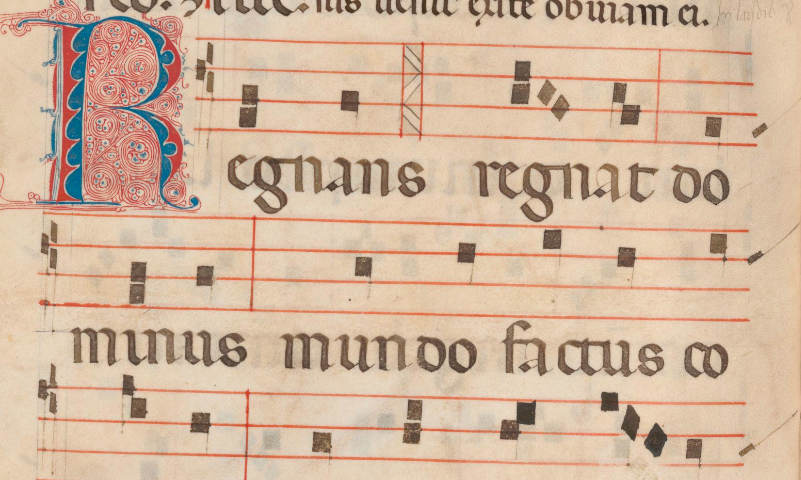 sus uenit exite obuiam ei.
Regnans regnat do
minus mundo factus co